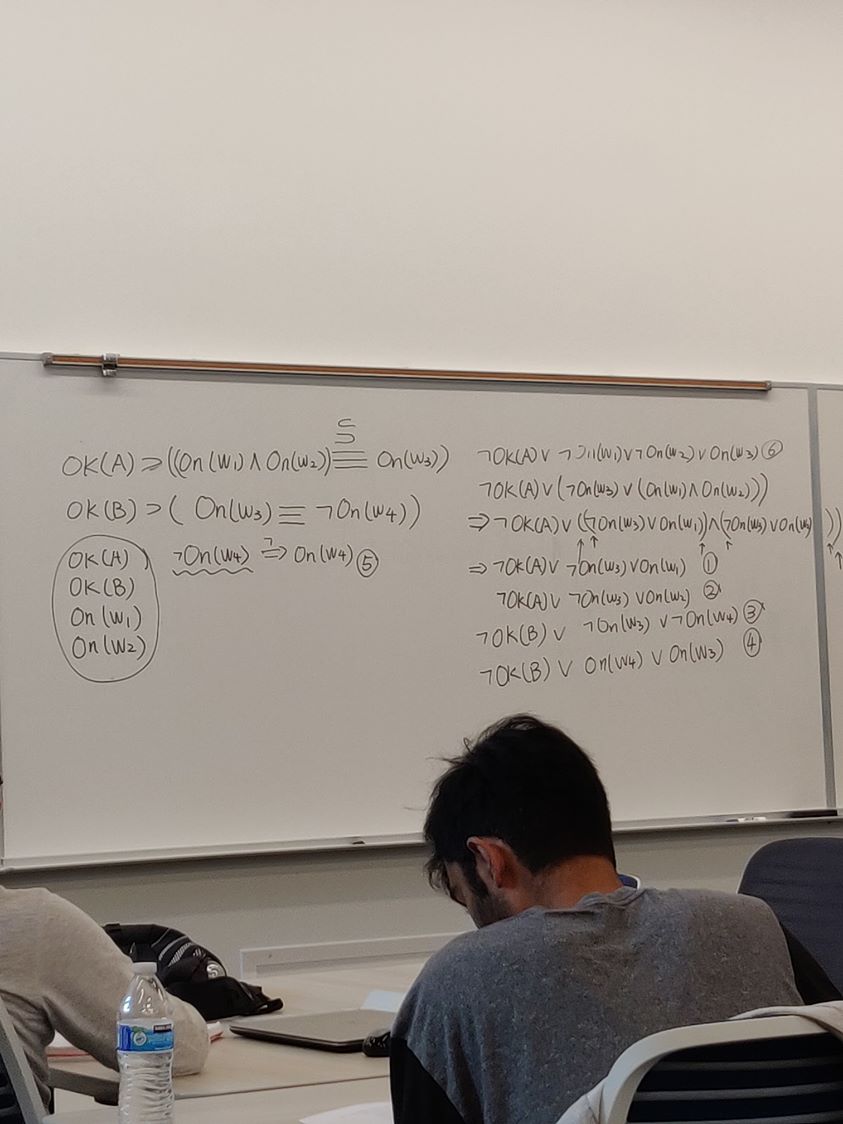 ⊂
⊃
OK(A) ⊃ ((On(W₁) ∧ On(W₂)) ≡ On(W₃))
OK(B) ⊃ ( On(W₃) ≡ ¬On(W₄))
OK(A)
OK(B)
On(W₁)
On(W₂)
¬On(W₄) ⇒ ¬ On(W₄) ⑤
¬OK(A) ∨ ¬On(W₁) ∨ ¬On(W₂) ∨ On(W₃) ⑥
¬OK(A) ∨ (¬On(W₃) ∨ (On(W₁) ∧ On(W₂)))
⇒ ¬OK(A) ∨ ((¬On(W₃) ∨ On(W₁)) ∧ (¬On(W₃) ∨ On(W₂) ))
⇒ ¬OK(A) ∨ ¬On(W₃) ∨ On(W₁) ①
¬OK(A) ∨ ¬On(W₃) ∨ On(W₂) ②
¬OK(B) ∨ ¬On(W₃) ∨ ¬On(W₄) ③
¬OK(B) ∨ On(W₄) ∨ On(W₃) ④